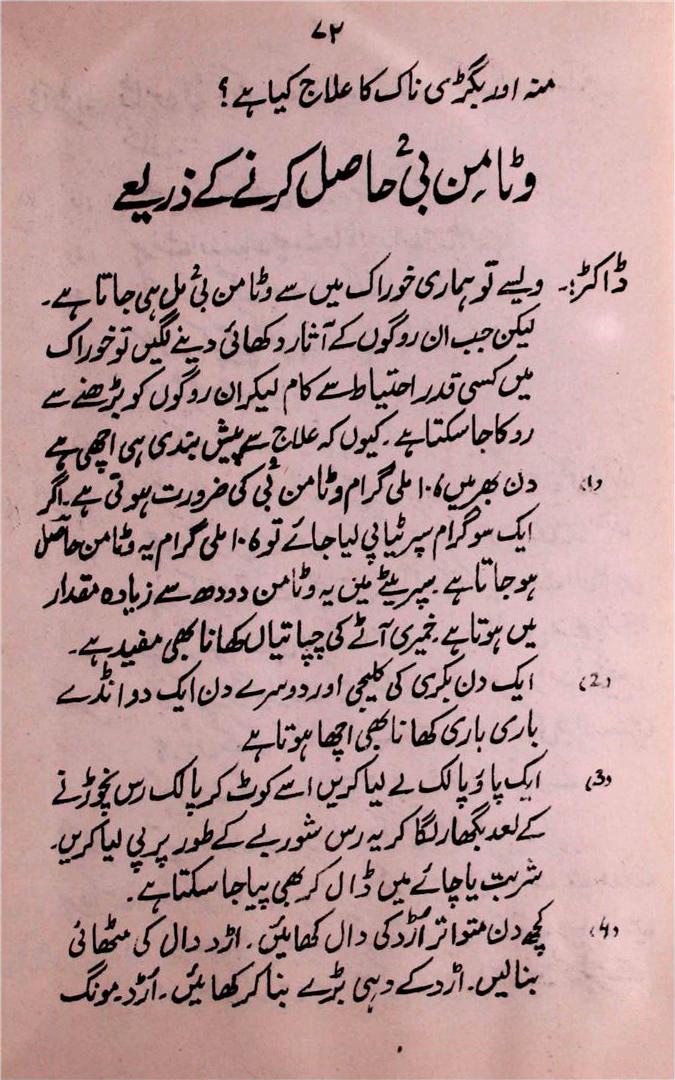 ۷۲
منہ اور بگڑی ناک کا علاج کیا ہے؟
وٹامِن بی2 حاصل کرنے کے ذریعے
ڈاکٹر:۔ ویسے تو ہماری خوراک میں سے وٹامن بی2 مل ہی جاتا ہے۔
لیکن جب ان روگوں کے آثار دکھائی دینے لگیں تو خوراک
میں کسی قدر احتیاط سے کام لیکر ان روگوں کو بڑھنے سے
روکا جا سکتا ہے۔ کیوں کہ علاج سے پیش بندی ہی اچھی ہے
(1) دن بھر میں ۱۰۶ ملی گرام وٹامن بی2 کی ضرورت ہوتی ہے۔ اگر
ایک سو گرام سپرٹیا پی لیا جائے تو ۱۰۶ ملی گرام یہ وٹامن حاصل
ہو جاتا ہے۔ سپریٹے میں یہ وٹامن دودھ سے زیادہ مقدار
میں ہوتا ہے۔ خمیری آٹے کی چپاتیاں کھانا بھی مفید ہے۔
(2) ایک دن بکری کی کلیجی اور دوسرے دن ایک دو انڈے
باری باری کھانا بھی اچھا ہوتا ہے
(3) ایک پاؤ پالک لے لیا کریں اسے کوٹ کر پالک رس نچوڑنے
کے بعد بگھار لگا کر یہ رس شوربے کے طور پر پی لیا کریں۔
شربت یا چائے میں ڈال کر بھی پیا جا سکتا ہے۔
(4) کچھ دن متواتر اُڑد کی دال کھائیں۔ اڑد دال کی مٹھائی
بنالیں۔ اڑد کے دہی بڑے بنا کر کھائیں۔ اُڑد۔ مونگ